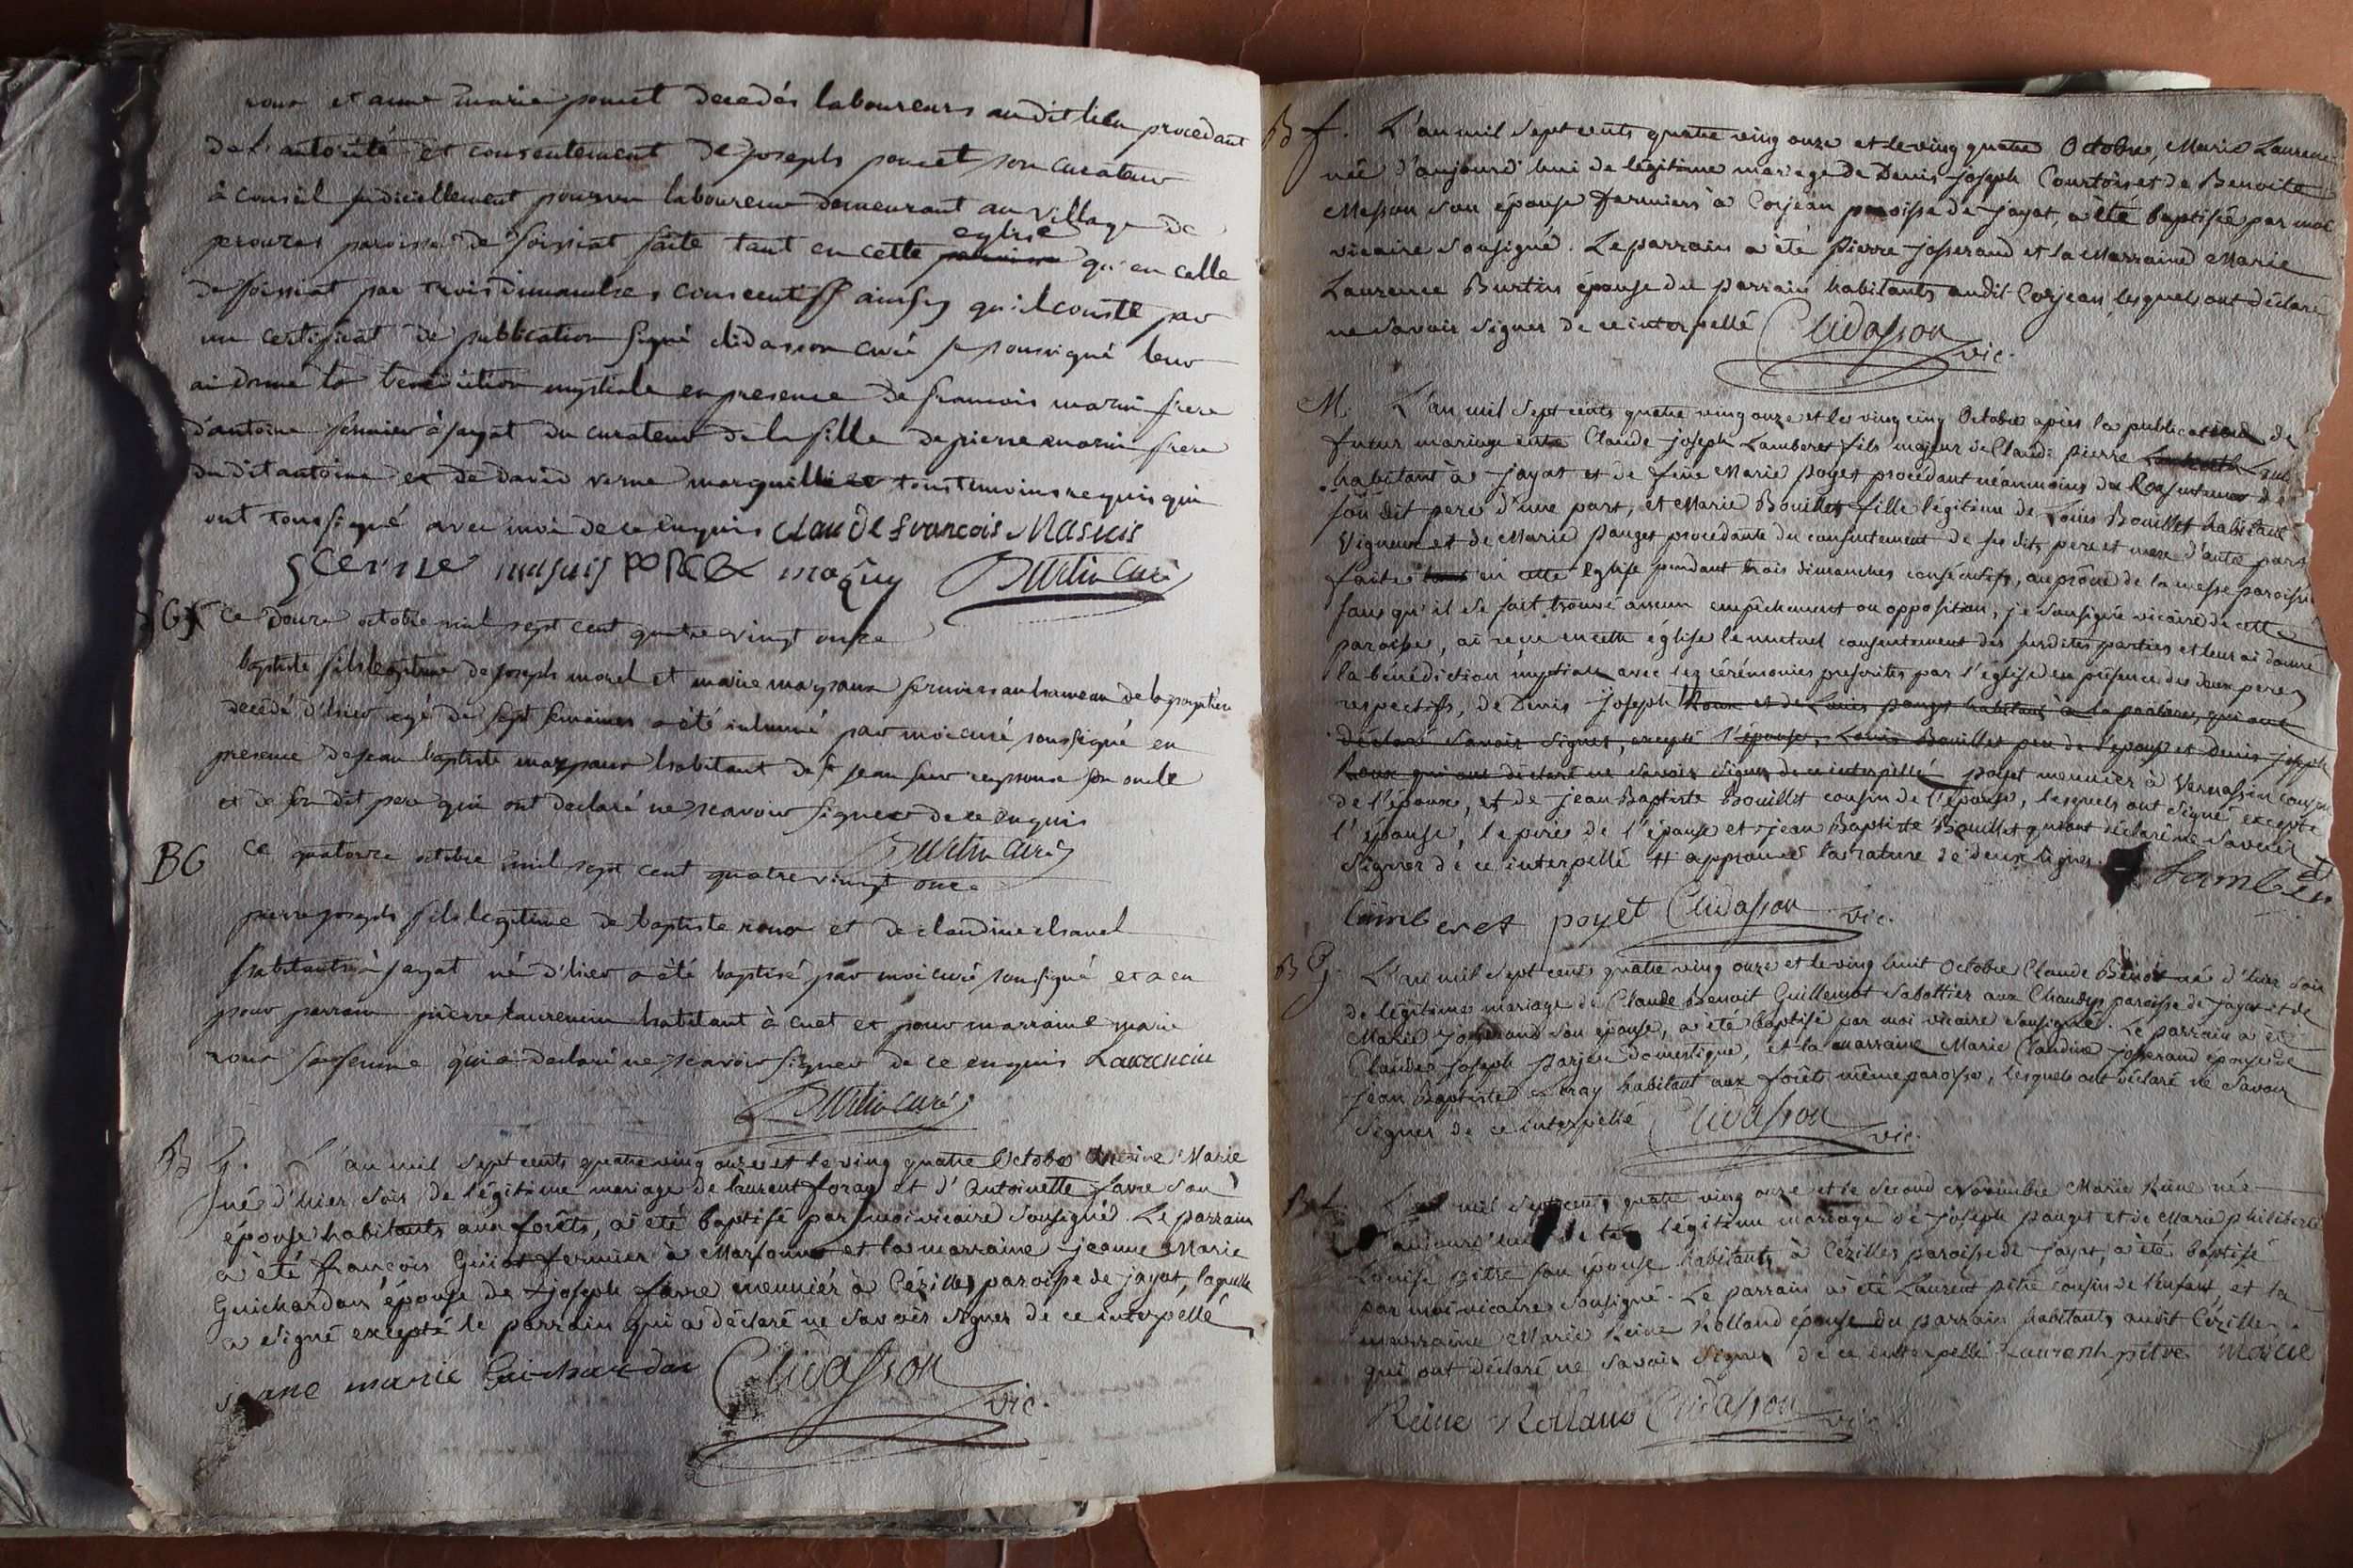 roux et anne marie poncet decedés laboureurs audit lieu procedant
de l'autorité et consentement de joseph poncet son curateur
& conseil judiciellement pourvu laboureur demeurant au village de
perouzes paroisse de foissiat faite tant en cette eglise qu'en celle
de foissiat par trois dimanches consecutifs ainsy qu'il conste par
un certificat de publication signé clidasson curé je soussigné leur
ai donné la benediction nuptiale en presence de francois marin frere
d'antoine fermier à jayat du curateur de la fille de pierre marin frere
du dit antoine et de david verne marguillier tous temoins requis qui
ont tous signé avec moi de ce enquis claude francois Masuis
masuis poncet Burtin curé
SG ce douze octobre mil sept cent quatre vingt onze
baptiste fils legitime de joseph morel et marie fermiers au hameau de la
decedé d'hier agé de sept semaines a été inhumé par moi curé soussigné en
presence de jean baptiste habitant de st jean sur reyssouze son oncle
et de son dit pere qui ont declaré ne scavoir signer de ce enquis
Burtin curé
BG ce quatorze octobre mil sept cent quatre vingt onze
pierre joseph fils legitime de baptiste roux et de claudine chanel
habitants à jayat né d'hier a été baptisé par moi curé soussigné et a eu
pour parrain pierre laurencin habitant à cuet et pour marraine marie
roux sa femme qui a declaré ne scavoir signer de ce enquis Laurencin
Burtin curé
B g. L'an mil sept cents quatre ving onze et le ving quatre Octobre Marie
né d'hier soir de légitime mariage de laurent foray et d'Antoinette favre son
épouse habitants aux forêts, a été baptisé par moi vicaire soussigné. Le parrain
a été françois Guiot fermier à Marsonnas et la marraine jeanne Marie
Guichardan épouse de joseph favre meunier à Cézilles paroisse de jayat, laquelle
a signé excepté le parrain qui a déclaré ne savoir signer de ce interpellé
jeane marie Guichardan Clidasson vic.
B f. L'an mil sept cents quatre ving onze et le ving quatre Octobre, Marie Laurence
née d'aujourd'hui de légitime mariage de Denis joseph Courtois et de Benoite
Messon son épouse fermiers à Corjean paroisse de jayat, a été baptisée par moi
vicaire soussigné. Le parrain a été Pierre josserand et la Marraine Marie
Laurence Burtin épouse du parrain habitants audit Corjean lesquels ont déclaré
ne savoir signer de ce interpellé Clidasson vic.
M. L'an mil sept cents quatre ving onze et le ving cinq Octobre après la publication de
futur mariage entre Claude joseph Lamberet fils majeur de Claude pierre
habitant à jayat et de feue Marie poyet procédant néanmoins du consentement de
son dit pere d'une part, et Marie Bouillet fille légitime de Louis Bouillet habitant
Vigneux et de Marie pauget procédante du consentement de ses dits pere et mere d'autre part
faites en cette Eglise pendant trois dimanches consécutifs, au prône de la messe paroissiale
sans qu'il se soit trouvé aucun empêchement ou opposition, je soussigné vicaire de cette
paroisse, ai reçu en cette église le mutuel consentement des susdites parties et leur ai donné
la bénédiction nuptiale avec les cérémonies prescrites par l'église en présence des deux peres
respectifs, de Denis joseph Roux et de Louis pauget habitant à la qui ont
déclaré savoir signer, excepté l'épouse, Louis Bouillet pere de l'épouse et Denis joseph
Roux qui ont déclaré ne savoir signer de ce interpellé poyet meunier à Vernassin cousin
de l'époux, et de jean Baptiste Bouillet cousin de l'épouse, lesquels ont signé excepté
l'épouse, le pere de l'épouse et jean Baptiste Bouillet qui ont déclaré ne savoir
signer de ce interpellé # approuvé la rature de deux lignes
lamberet poyet Clidasson vic.
B G. L'an mil sept cents quatre ving onze et le ving huit Octobre Claude Benoit né d'hier soir
de légitime mariage de Claude Benoit Guillemot sabottier aux Chaudys paroisse de jayat et de
Marie josserand son épouse, a été baptisé par moi vicaire soussigné. Le parrain a été
Claude joseph parjeu domestique, et la marraine Marie Claudine josserand épouse de
jean Baptiste habitant aux forêts même paroisse, lesquels ont déclaré ne savoir
signer de ce interpellé Clidasson vic.
B f. L'an mil sept cents quatre ving onze et le second Novembre Marie Reine née
aujourd'hui de légitime mariage de joseph pauget et de Marie philiberte
Louise pitre son épouse habitants à Cézilles paroisse de jayat, a été baptisé
par moi vicaire soussigné. Le parrain a été Laurent pitre cousin de l'enfant, et la
marraine Marie Reine Rolland épouse du parrain habitants audit Cézilles
qui ont déclaré ne savoir signer de ce interpellé Laurent pitre marie
Reine Rolland Clidasson vic.